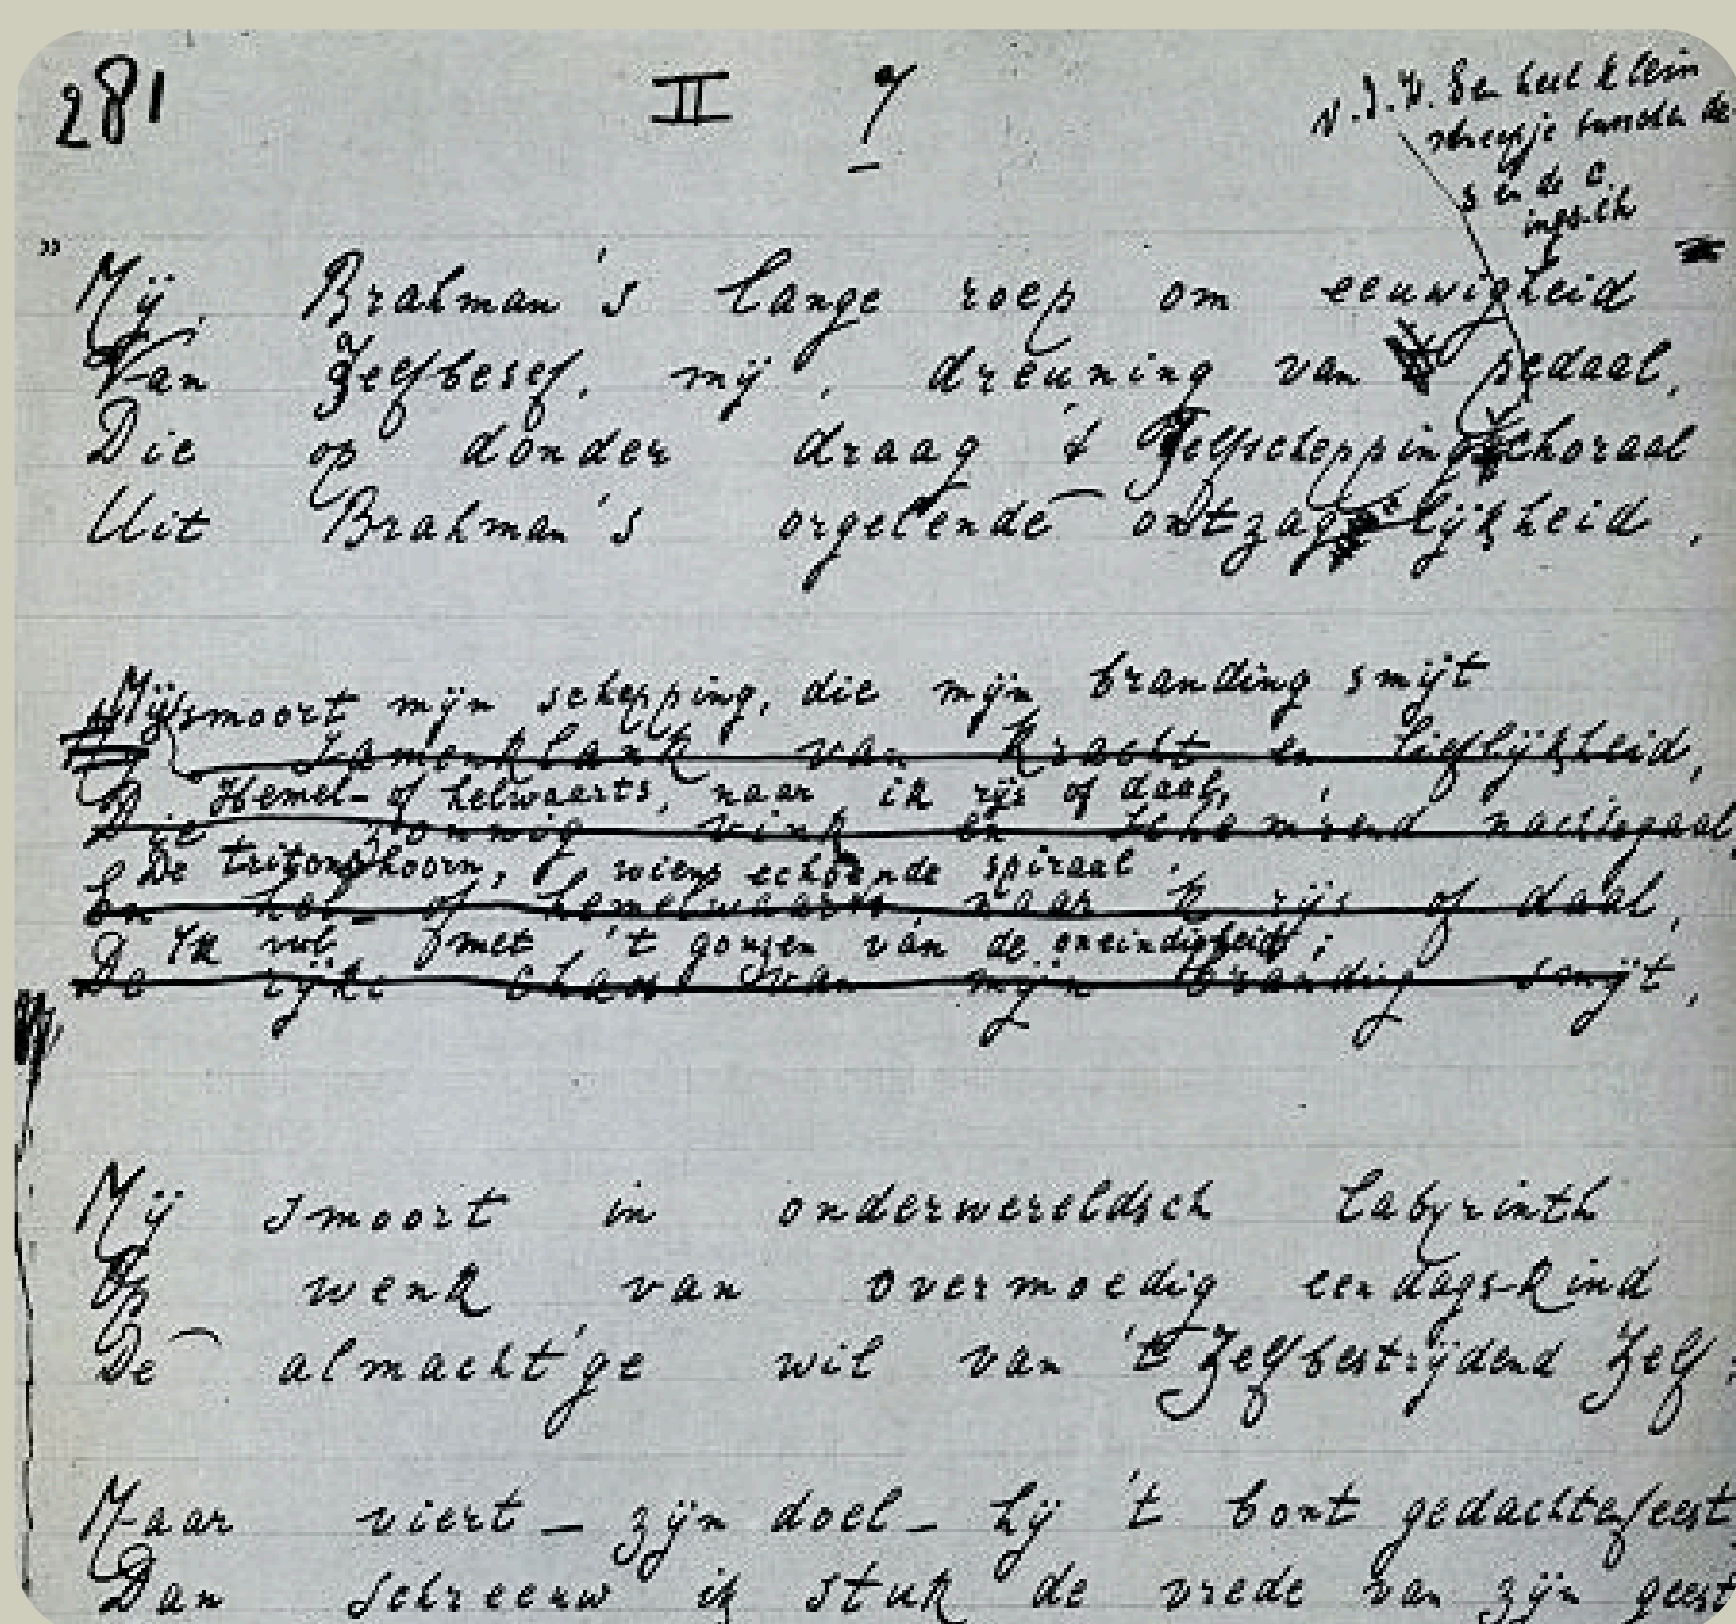 281 II 7
Een heel klein
streepje tusschen de
s en de c.
„Mij Brahman's lange roep om eeuwigheid
Van Zelfbesef, mij, dreuning van pedaal,
Die op donder draag 't Zelfscheppingschoraal
Uit Brahman's orgelende ontzaglijkheid,
Mij smoort mijn schepping, die mijn branding smijt
Samenklank van kracht en lieflijkheid,
Hemel- of helwaarts, naar ik rijs of daal,
Die zonnig vink en schemerend nachtegaal
De tritonshoorn, wiens echoënde spiraal
En hel- of hemelwaarts, naar ik rijs of daal,
Ik vul met 't gonzen van de oneindigheid;
De rijke chaos van mijn branding smijt,
Mij smoort in onderwereldsch labyrinth
Op wenk van overmoedig eendags-kind
De almacht'ge wil van 't Zelfbestrijdend Zelf;
Maar viert – zijn doel – hij 't bont gedachtefeest,
Dan schreeuw ik stuk de vrede van zijn geest